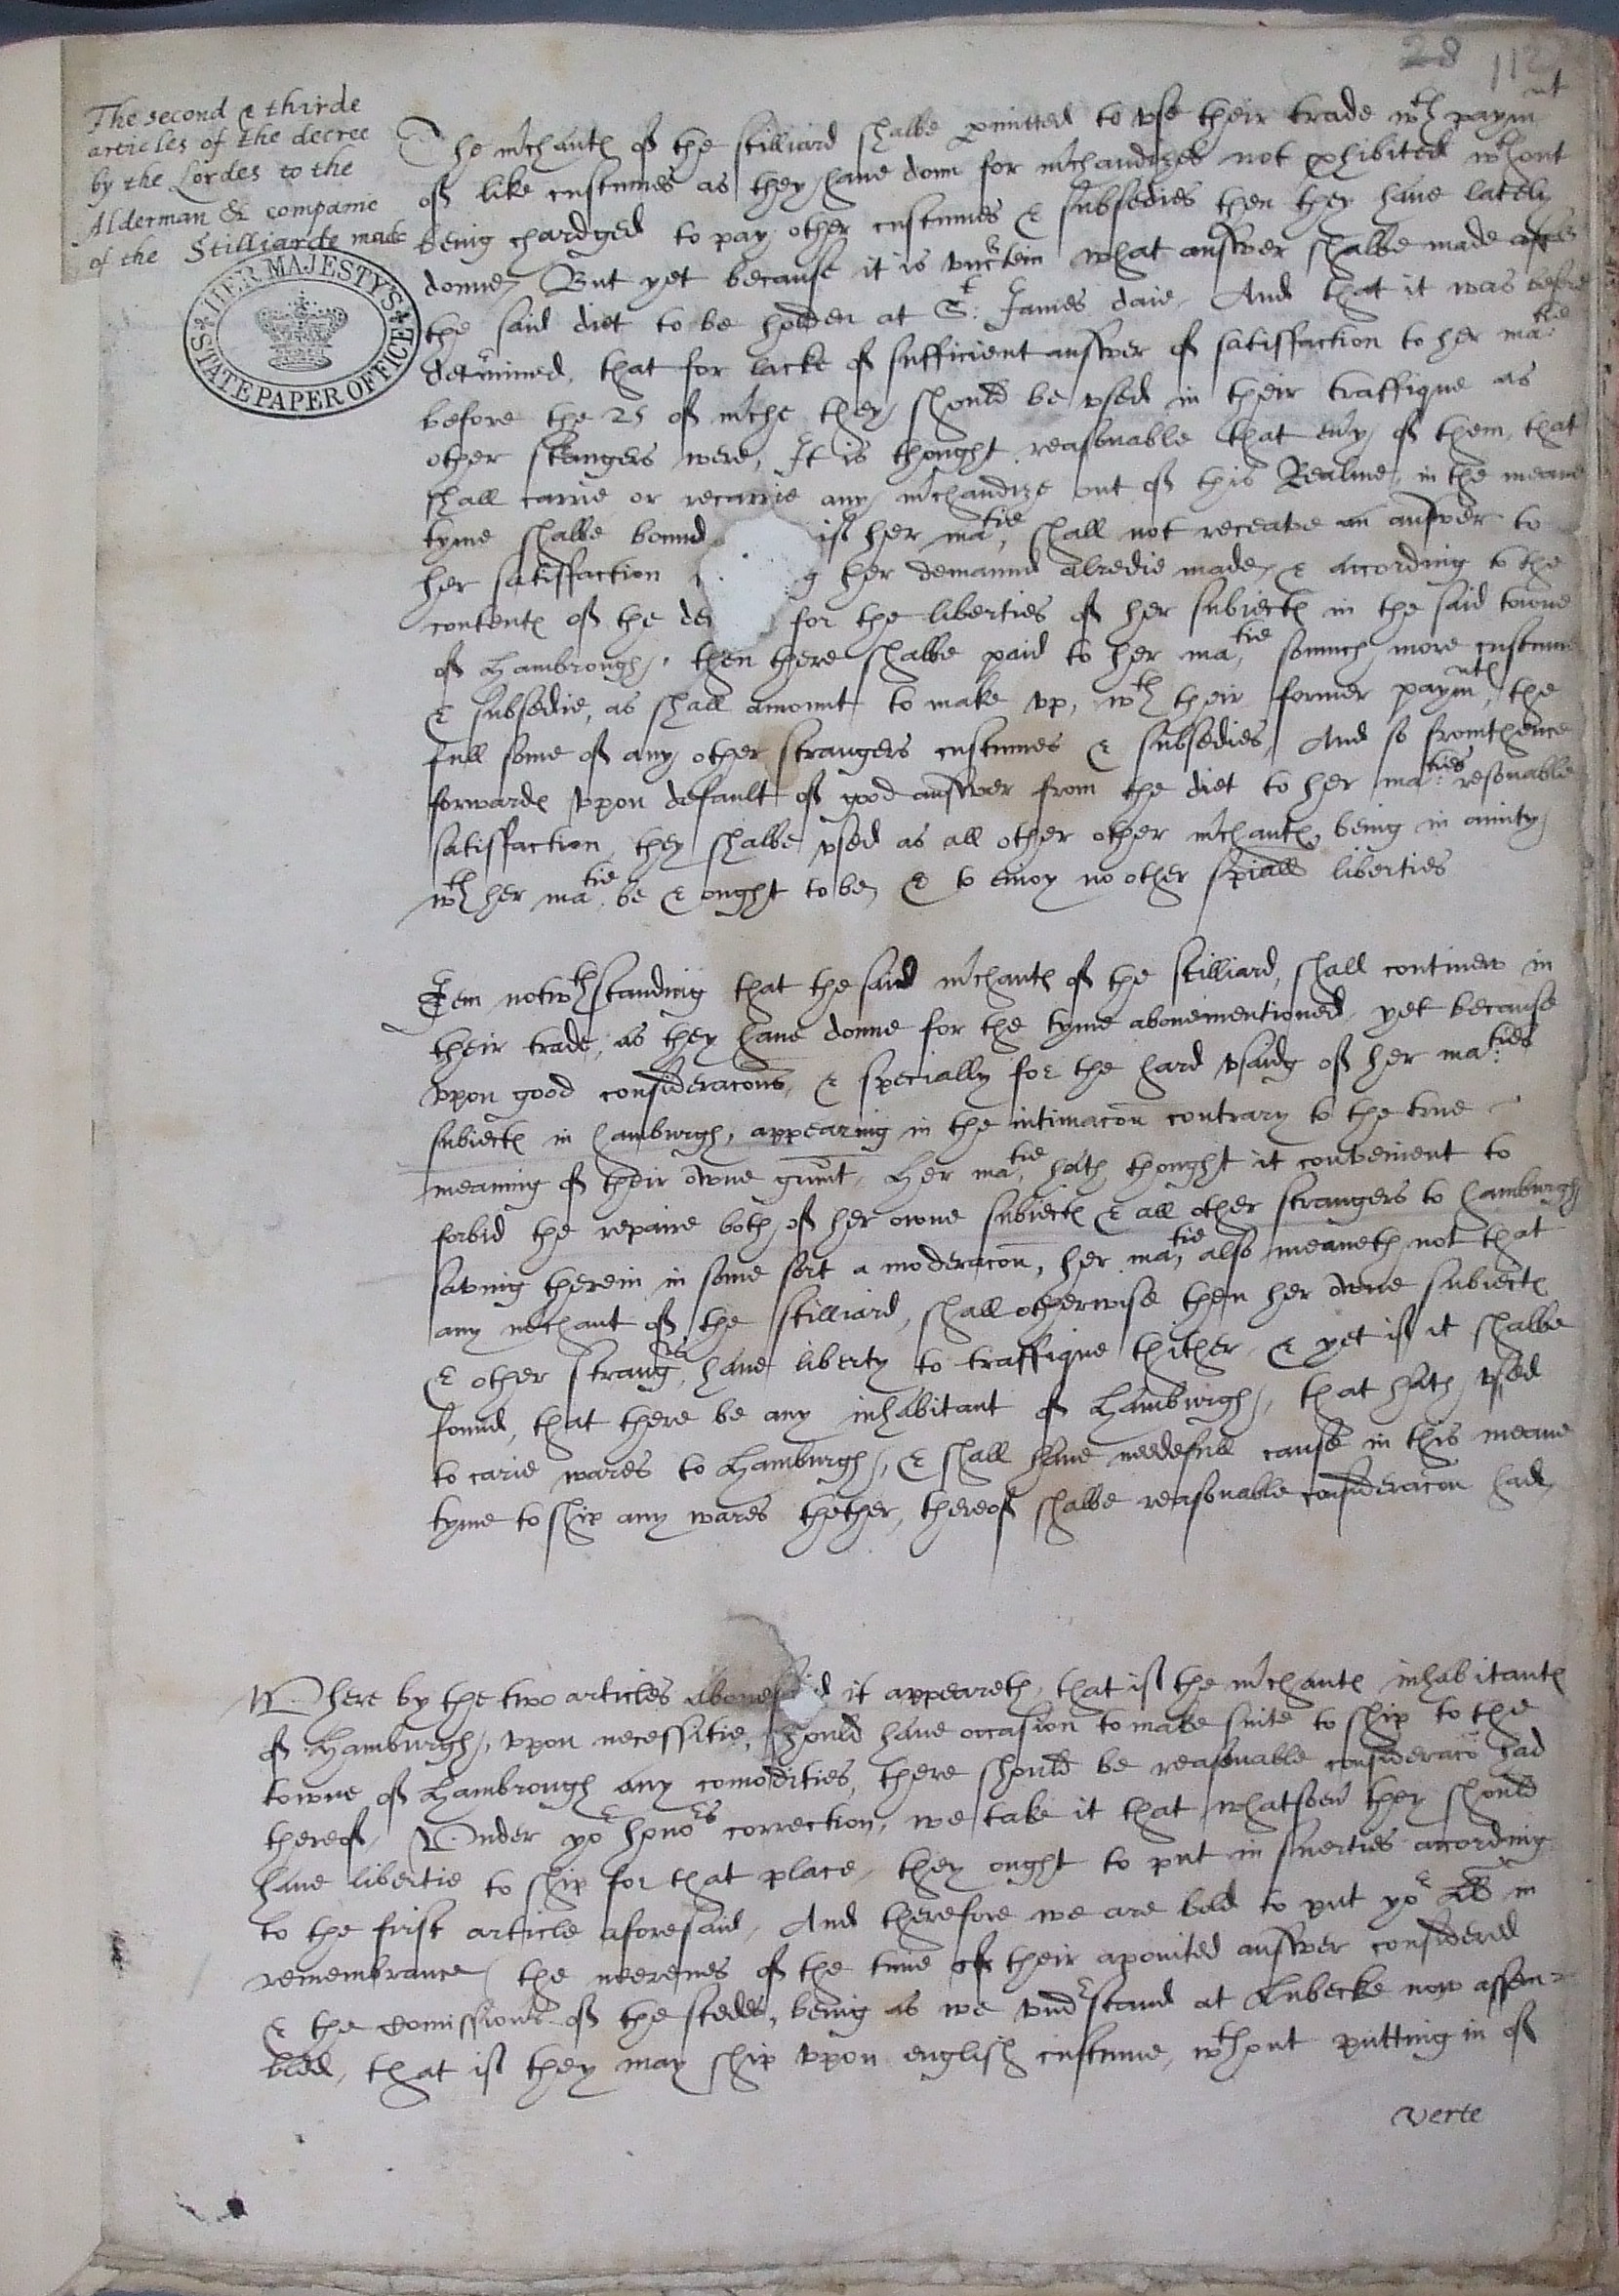 28 112
The second & thirde
articles of the decree
by the Lordes to the
Alderman & companie
of the Stilliarde made
HER MAJESTY'S
STATE PAPER OFFICE
The mchantes of the stilliard shalbe pmitted to vse their trade wth paymnt
of like custumes as they haue donn for mchandizes not phibited wthout
being chardged to pay other custumes & subsedies then they haue lately
donne, But yet because it is vncrtein what answer shalbe made
the said diet to be holden at St: James daie, And that it was before
determined, that for lacke of sufficient answer of satisffaction to her matie
before the 25 of mche they should be vsed in their traffique as
other strangers were, It is thought reasonable that eury of them that
shall carrie or recarrie any mchandize out of this Realme, in the meane
tyme shalbe bound if her matie, shall not receaue an answer to
her satisffaction g her demaund alredie made, & according to the
contentes of the de for the liberties of her subiectes in the said towne
of Hambrough, then there shalbe paid to her matie, somuch more custume
& subsedie, as shall amount to make vp, wth their former paymntes, the
full some of any other strangers custumes & subsedies, And so fromthence
forwardes vpon default of good answer from the diet to her maties: resonable
satisffaction, they shalbe vsed as all other other mchantes being in amity
wth her matie: be & ought to be, & to enioy no other spiall liberties
Item notwthstanding that the said mchantes of the stilliard, shall continew in
their trade, as they haue donne for the tyme abouementioned, yet because
vpon good consideracons, & specially for the hard vsadg of her maties:
subiectes in hamburgh, appearing in the intimacon contrary to the true
meaning of their owne graunt, Her matie, hath thought it convenient to
forbid the repaire both of her owne subiectes & all other strangers to hamburgh
saving therein in some sort a moderacon, her matie, also meaneth not that
any mchant of the stilliard, shall otherwise then her owne subiectes
& other strangrs, haue liberty to traffique thither, & yet if it shalbe
found, that there be any inhabitant of Hamburgh, that hath vsed
to carie wares to Hamburgh, & shall haue nedefull cause in this meane
tyme to ship any wares thether, thereof shalbe reasonable consideracon had,
Where by the two articles abouesaid it appeareth, that if the mchantes inhabitantes
of Hamburgh, vpon necessitie, should haue occasion to make suite to ship to the
towne of Hambrough any comodities, there should be reasonable consideraco had
thereof, Vnder yor honors correction, we take it that whatsoeu they should
haue libertie to ship for that place, they ought to put in suerties according
to the first article aforesaid, And therefore we are bold to put yor in
remembrance, the neerenes of the time of their apointed answer considered
& the comissions of the stedes, being as we vndrstand at Lubecke now assem=
bled, that if they may ship vpon english custume, wthout putting in of
verte